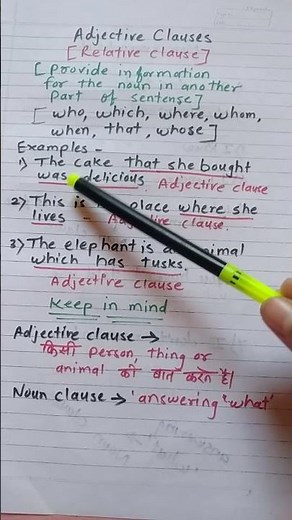 Adjective Clauses
[Relative clause]
[provide information
for the noun in another
part of sentence]
[who, which, where, whom,
when, that, whose]
Examples -
1) The cake that she bought
was delicious. Adjective clause
2) This is place where she
lives - Adjective clause.
3) The elephant is animal
which has tusks.
Adjective clause
Keep in mind
Adjective clause →
किसी person, thing or
animal की बात करते हैं।
Noun clause → 'answering 'what'